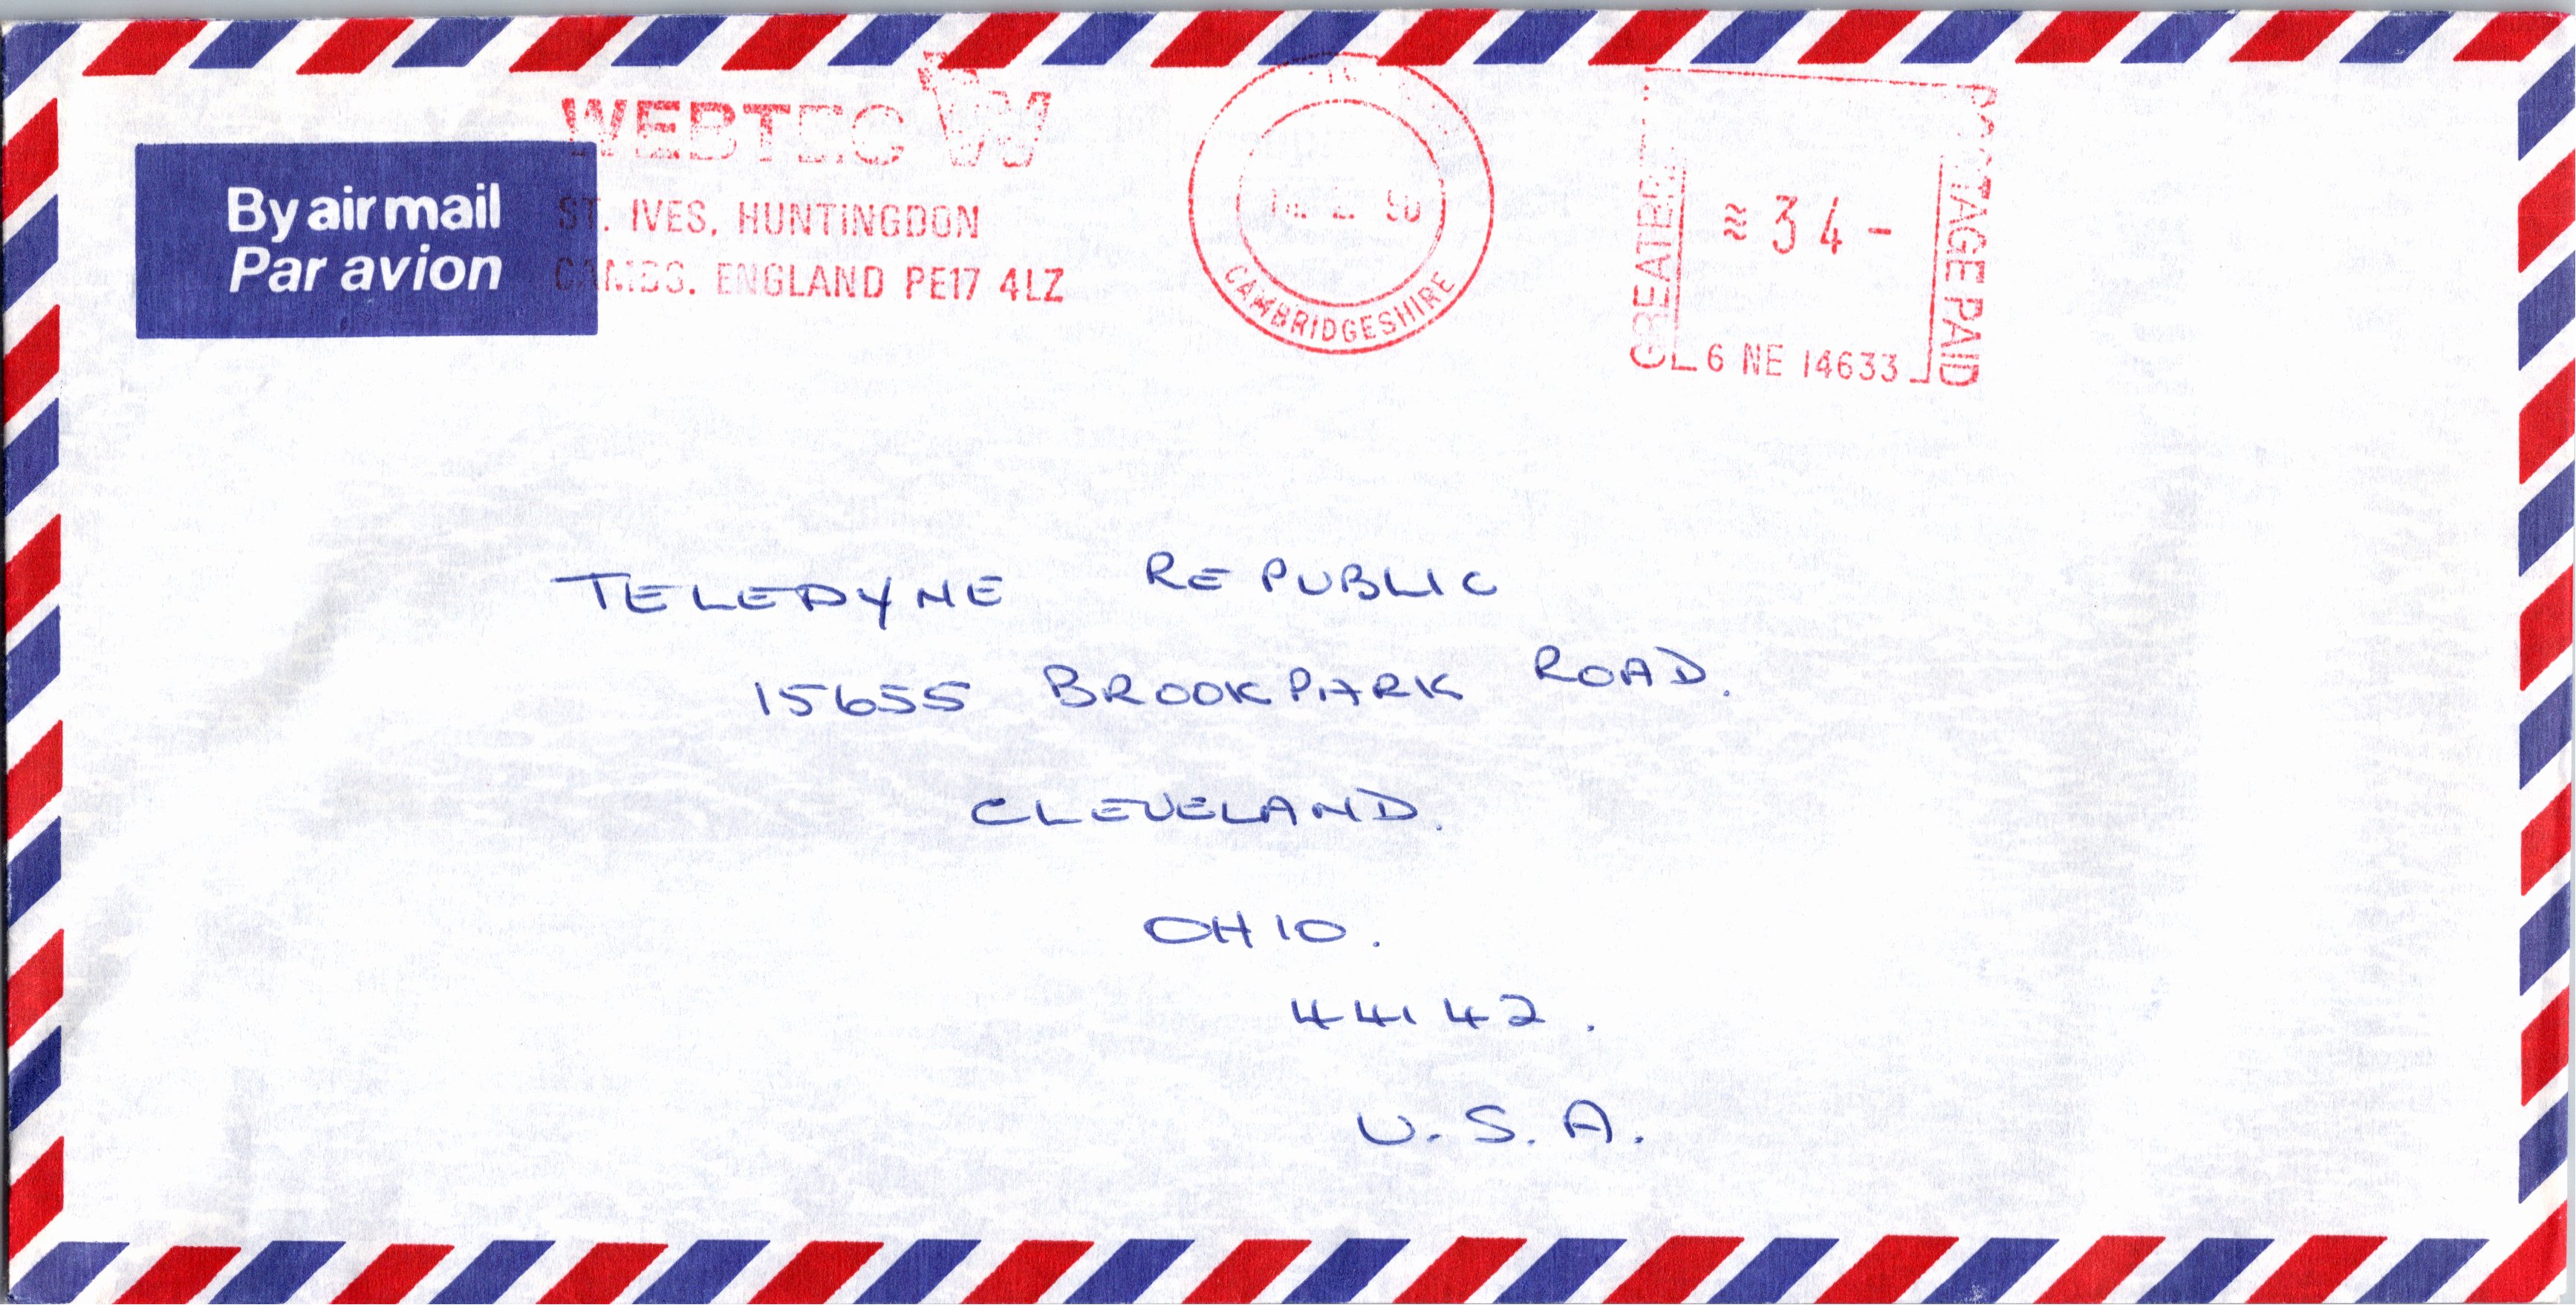 WEBTEC W
By air mail
Par avion
ST. IVES, HUNTINGDON
CAMBS. ENGLAND PE17 4LZ
CAMBRIDGESHIRE
GREATER
34 -
POSTAGE PAID
6 NE 14633
TELEDYNE REPUBLIC
15655 BROOKPARK ROAD.
CLEVELAND.
OHIO.
44142.
U.S.A.